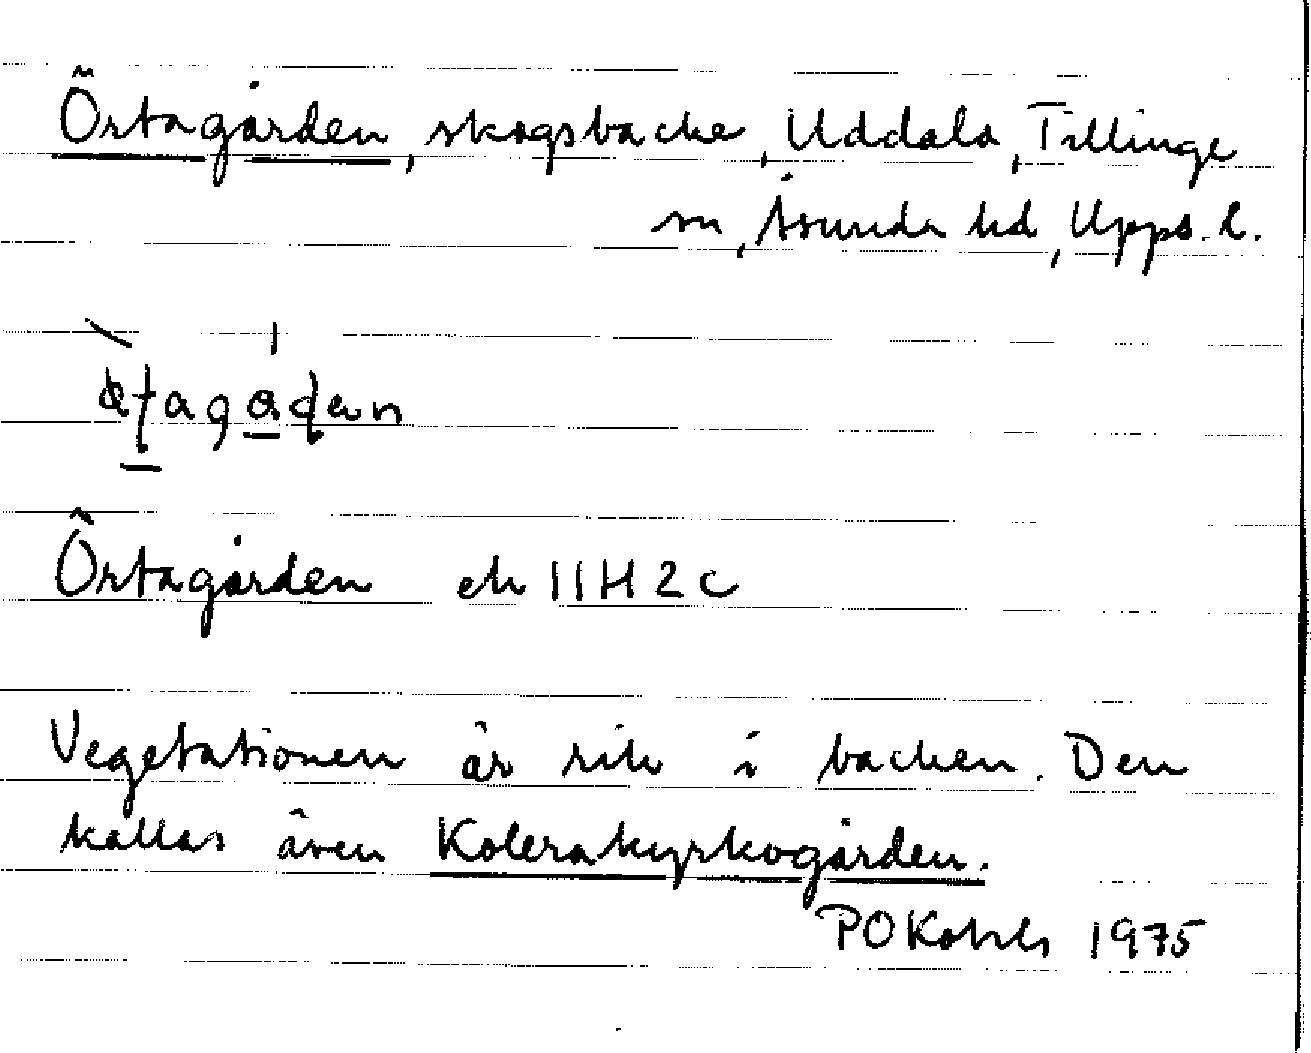 Örtagården, skogsbacke, Uddala, Tillinge
sn, Åsunda hd, Upps. l.
Örtagården ek 11H2c
Vegetationen är rik i backen. Den
kallas även Kolerakyrkogården.
PO 1975